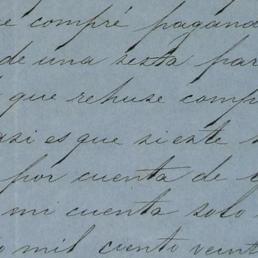 e compré pagand
de una sesta par
que rehuse comp
asi es que si este
por cuenta de
mi cuenta solo
o mil ciento veint